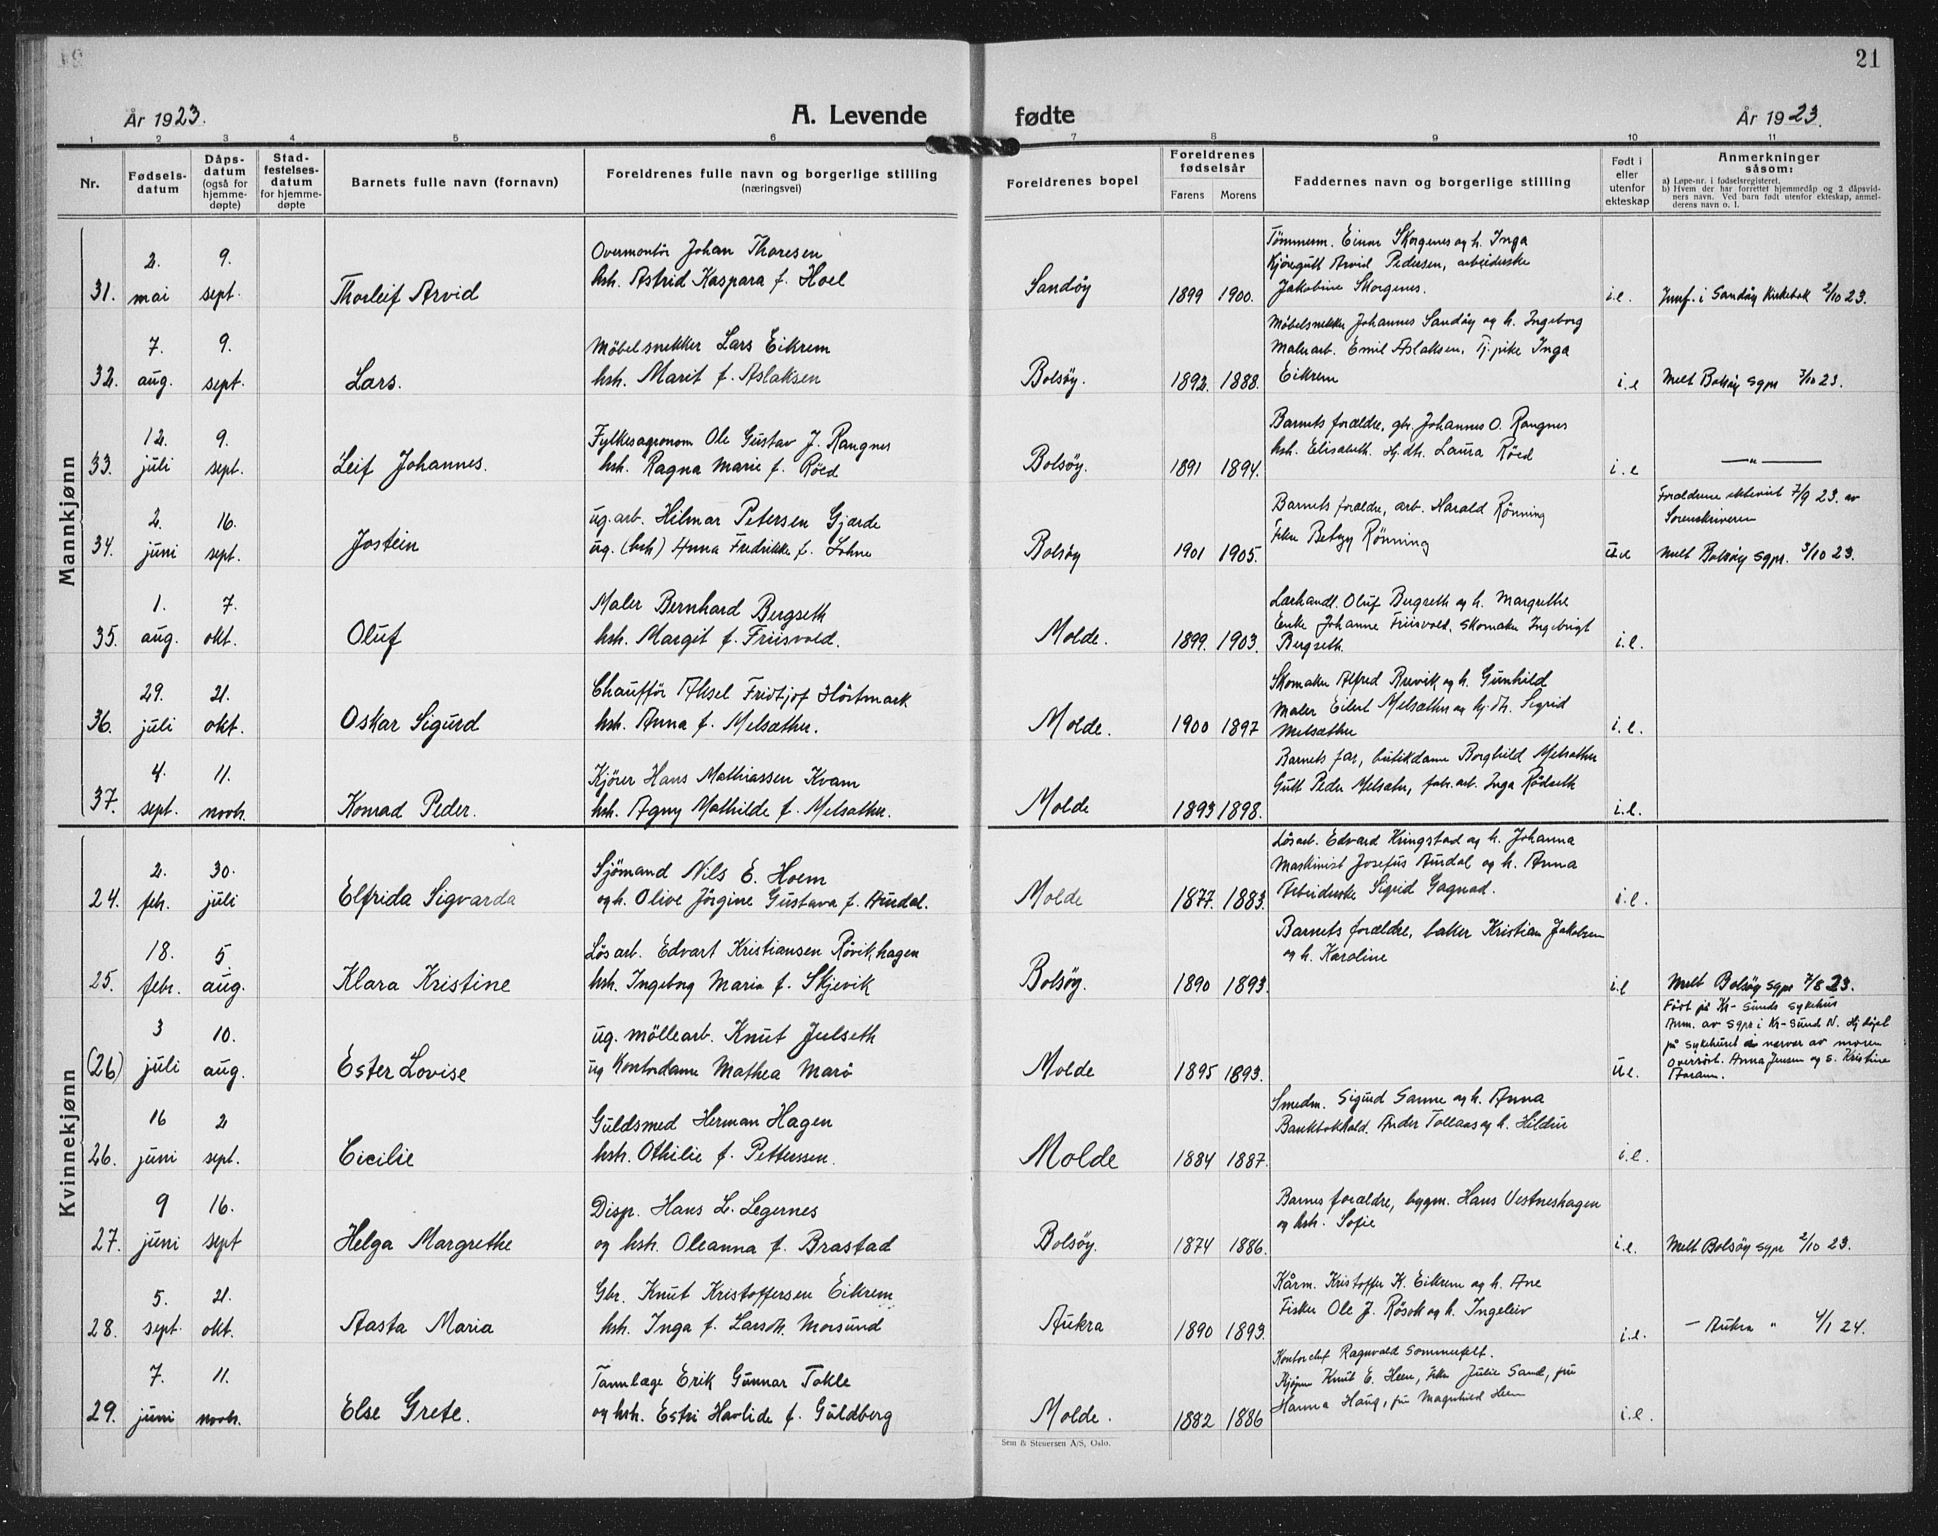 21
År 1923.
A. Levende fødte
År 1923.
1 2 3 4 5 6 7 8 9 10 11
Nr.
Fødsels-
datum
Dåps-
datum
(også for
hjemme-
døpte)
Stad-
festelses-
datum
for hjemme-
døpte
Barnets fulle navn (fornavn)
Foreldrenes fulle navn og borgerlige stilling
(næringsvei)
Foreldrenes bopel
Foreldrenes
fødselsår
Farens Morens
Faddernes navn og borgerlige stilling
Født i
eller
utenfor
ekteskap
Anmerkninger
såsom:
a) Løpe-nr. i fødselsregisteret.
b) Hvem der har forrettet hjemmedåp og 2 dåpsvid-
ners navn. Ved barn født utenfor ekteskap, anmel-
derens navn o. l.
Mannkjønn
31. 2. mai 9. sept. Thorleif Arvid
Overmontör Johan Thoresen
hsh. Astrid Kaspara f. Hoel
Sandöy 1899 1900.
Tömmerm. Einar Skorgenes og h. Inga
Kjöregutt Arvid Pedersen, arbeiderske
Jakobine Skorgenes.
i.e. Innf. i Sandöy Kirkebok 2/10 23.
32. 7. aug. 9. sept. Lars.
Möbelsnekker Lars Eikrem
hsh. Marit f. Aslaksen
Bolsöy. 1892. 1888.
Möbelsnekker Johannes Sandöy og h. Ingeborg
Malerarb. Emil Aslaksen, Tj.pike Inga
Eikrem
i.e Melt Bolsöy sgpr 3/10 23.
33. 12. juli 9. sept. Leif Johannes.
Fylkesagronom Ole Gustav J. Rangnes
hsh. Ragna Marie f. Röed
Bolsöy. 1891 1894.
Barnets forældre, gbr. Johannes O. Rangnes
hsh. Elisabeth. Hj.dtr. Laura Röed
i.e — " —
34. 2. juni 16. sept. Jostein
ug. arb. Hilmar Petersen Gjærde
ug. (hsh) Anna Fredrikke f. Lohne
Bolsöy 1901 1905.
Barnets forældre, arb. Harald Rönning
frkn Betzy Rönning
u.e
Forældrene ekteviet 7/9 23. av
Sorenskriveren
Melt Bolsöy sgpr. 3/10 23.
35. 1. aug. 7. okt. Oluf
Maler Bernhard Bergseth
hsh. Margit f. Friisvold.
Molde. 1899. 1903.
Lærhandl. Oluf Bergseth og h. Margrethe
Enke Johanne Friisvold, Skomaker Ingebrigt
Bergseth.
i.e.
36. 29. juli 21. okt. Oskar Sigurd
Chaufför Aksel Fridtjof Höstmark
hsh. Anna f. Melsæther.
Molde. 1900 1897
Skomaker Alfred Arevik og h. Gunhild
Maler Eilert Melsæther og hj.dtr. Sigrid
Melsæther
i.e.
37. 4. sept. 11. novbr. Konrad Peder.
Kjörer Hans Mathiassen Kvam
hsh. Agny Mathilde f. Melsæther.
Molde 1893 1898.
Barnets far, butikdame Borghild Melsæther
Gutt Peder Melsæter, fabr. arb. Inga Rödseth
i.e.
Kvinnekjønn
24. 2. feb. 30. juli Elfrida Sigvarda
Sjömand Nils E. Hoem
og h. Olive Jörgine Gustava f. Aurdal.
Molde 1877. 1883.
Lösarb. Edvard Kringstad og h. Johanna
Maskinist Josefus Aurdal og h. Anna
Arbeiderske Sigrid Gagnad.
i.e.
25. 18. febr. 5. aug. Klara Kristine
Lösarb. Edvart Kristiansen Rövikhagen
hsh. Ingeborg Maria f. Skjevik
Bolsöy. 1890 1893.
Barnets forældre, bakker Kristian Jakobsen
og h. Karoline
i.e Melt Bolsöy sgpr 7/8 23.
(26) 3 juli 10. aug. Ester Lovise
ug. möllearb. Knut Julseth
ug Kontordame Mathea Marö
Molde 1895 1893.
u.e.
Födt på Kr-sunds sykehus
Anm. av sgpr i Kr-sund N. Hj.döpt
på sykehuset i nærvær av moren
oversöst. Anna Jensen og s. Kristine
26. 16 juni 2 sept. Cicilie
Guldsmed Herman Hagen
hsh. Othilie f. Petterssen.
Molde 1884 1887.
Smedm. Sigurd Sanne og h. Anna
Bankbokhold. Ander Tollaas og h. Hildur
i.e.
27. 9 juni 16. sept Helga Margrethe
Disp. Hans L. Legernes
og hsh. Oleanna f. Brastad
Bolsöy. 1874 1886.
Barnes forældre, bygm. Hans Vestneshagen
og hsh. Sofie
i.e. Melt Bolsöy sgpr 2/10 23.
28. 5. sept. 21. okt. Aasta Maria
Gbr. Knut Kristoffersen Eikrem
hsh. Inga f. Larsdtr. Morsund
Aukra 1890 1893.
Kårm. Kristoffer K. Eikrem og h. Ane
Fisker Ole J. Rösok og h. Ingeleiv
i.e. — Aukra " 4/1 24.
29. 7. juni 11. novbr. Else Grete.
Tannlæge Erik Gunnar Takle
og hsh. Estri Havlide f. Guldberg
Molde. 1882 1886
Kontorchef Ragnvald Sommerfelt.
Kjøpm Knut E. Heen, frkn Julie Sand, fru
Hanna Haug, fru Magnhild Heen
i.e.
Sem & Stenersen A/S, Oslo.